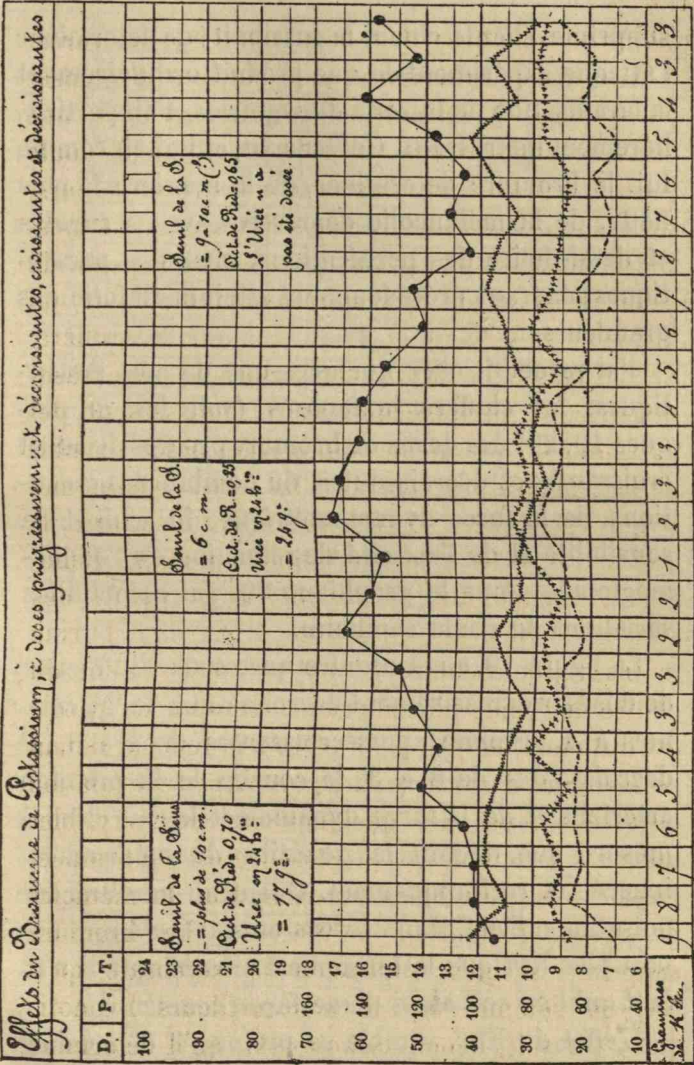 Effets du Bromure de Potassium, à doses progressivement décroissantes, croissantes et décroissantes.
D. P. T.
100 24
23
90 200 22
21
80 180 20
19
70 160 18
17
60 140 16
15
50 120 14
13
40 100 12
11
30 80 10
9
20 60 8
7
10 40 6
Seuil de la Sens
= plus de 10 c m.
Act. de Réd = 0,70
Urée en 24 h
= 17 g
Seuil de la S.
= 6 c m.
Act. de R = 0,25
Urée en 24 h
= 24 g
Seuil de la S.
= 9 à 10 c m (?)
Act. de Réd = 0,65
L'Urée n'a
pas été dosée.
Grammes
de K Br.
9 8 7 6 5 4 3 3 2 2 1 2 3 3 4 5 6 7 8 7 6 5 4 3 3